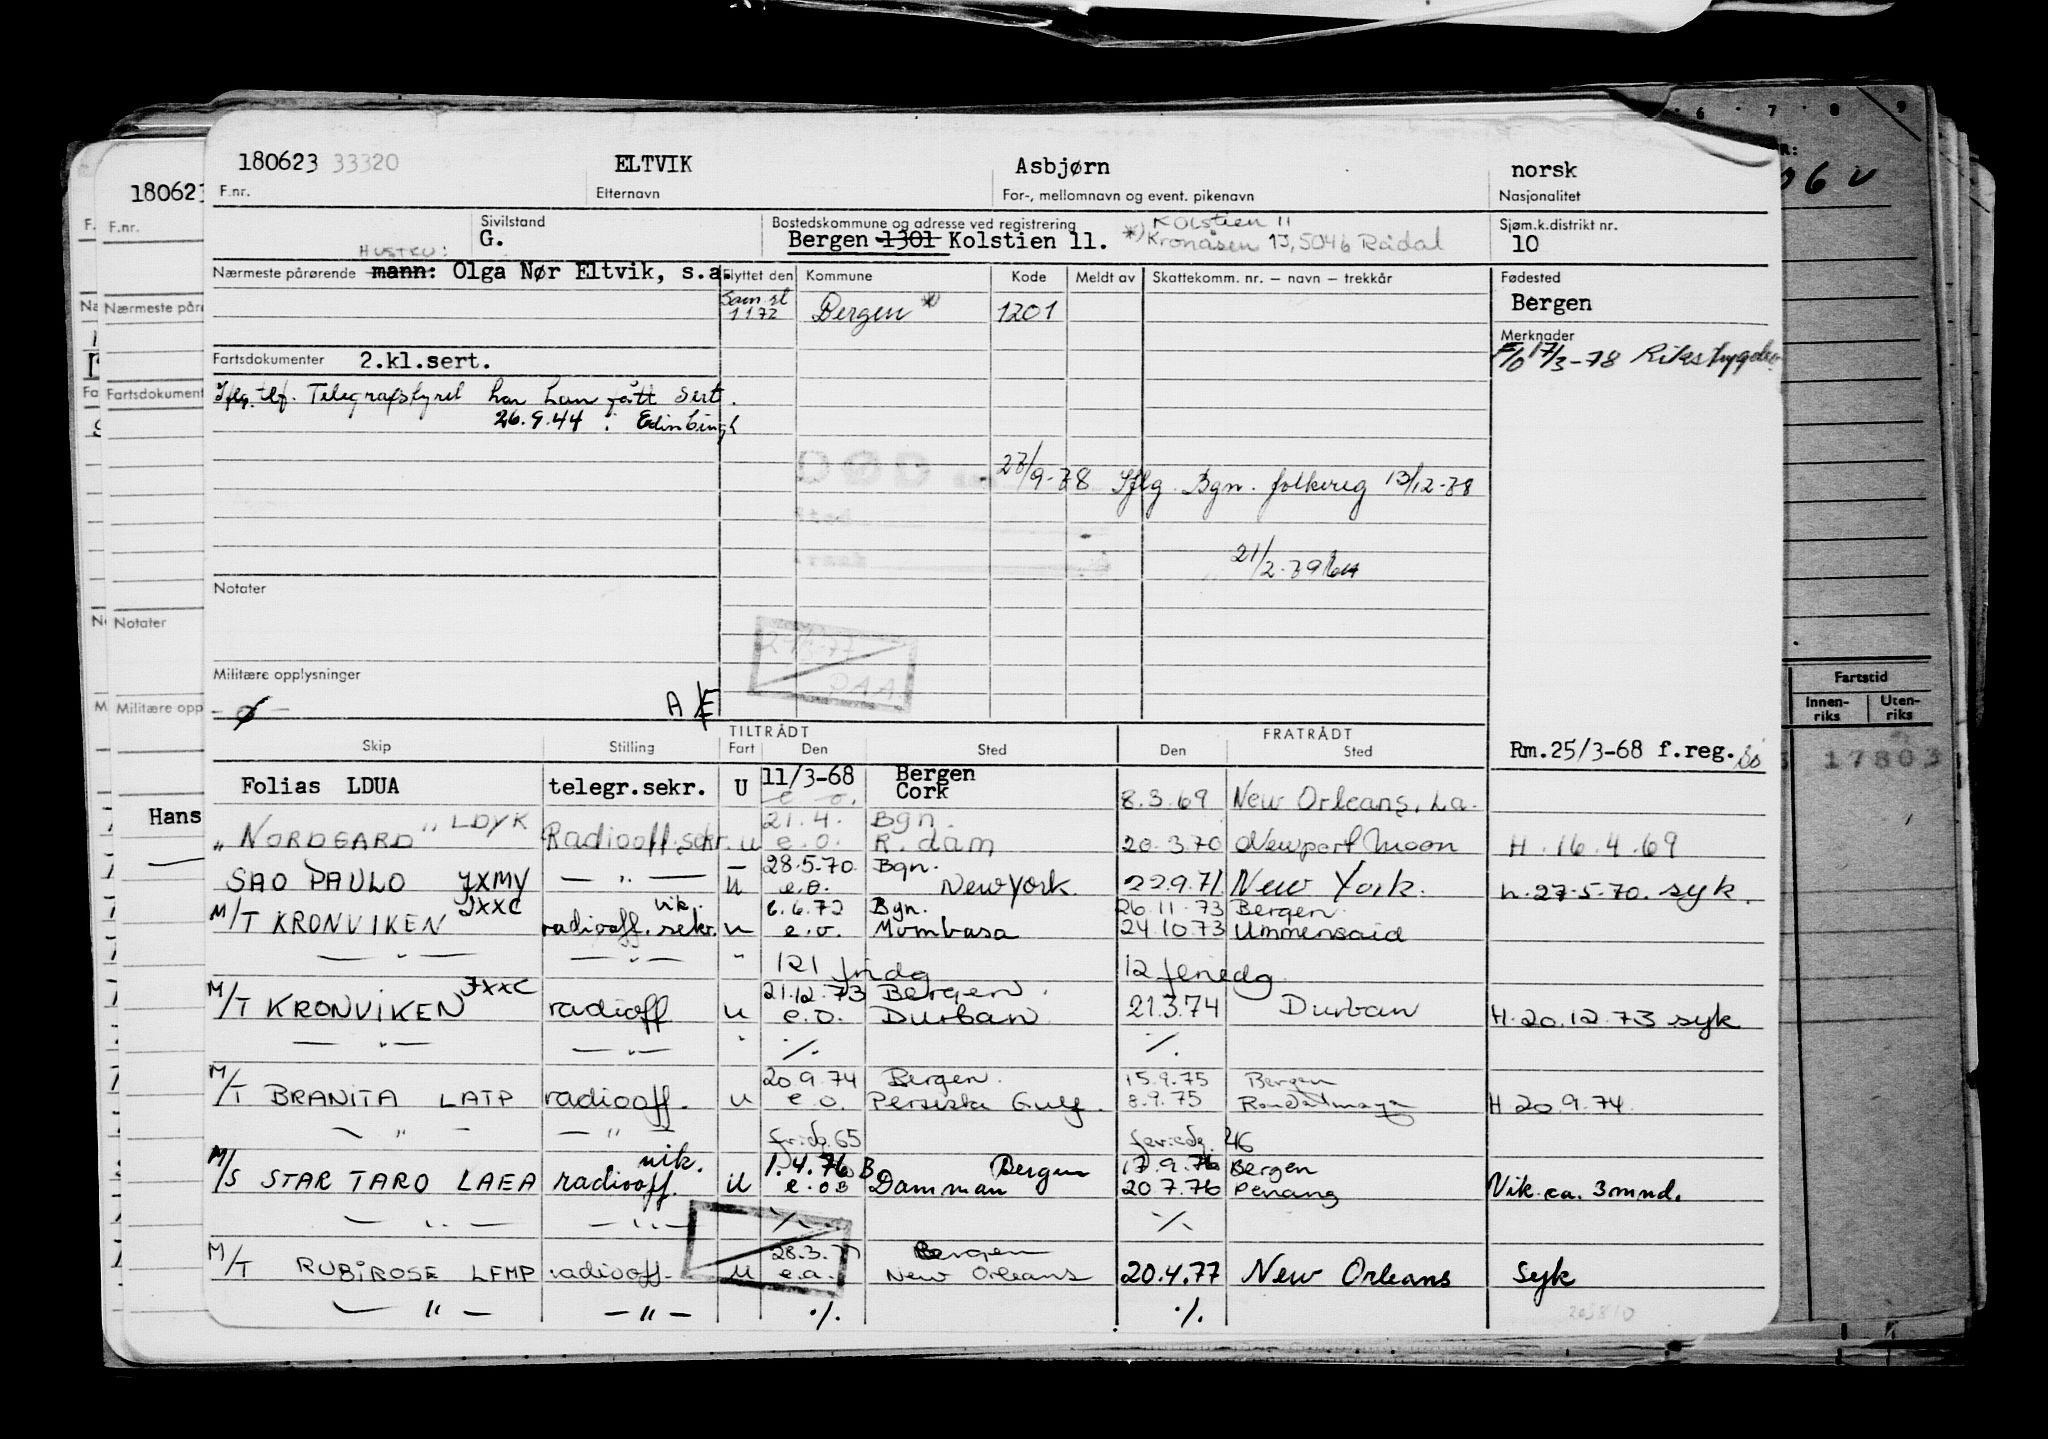 180623 33320 ELTVIK Asbjørn norsk
F.nr. Etternavn For-, mellomnavn og event. pikenavn Nasjonalitet
Sivilstand Bostedskommune og adresse ved registrering Kolstien 11 Sjøm.k.distrikt nr.
G. Bergen 1301 Kolstien 11. *) Kronåsen 13, 5046 Rådal 10
HUSTRU:
Nærmeste pårørende mann: Olga Nør Eltvik, s.a. Flyttet den Kommune Kode Meldt av Skattekomm. nr. – navn – trekkår Fødested
Sam.st 1172 Bergen *) 1201 Bergen
Merknader
Fartsdokumenter 2.kl.sert. F/O 17/3-78 Rikstrygden
Iflg. tlf. Telegrafstyret har han fått sert.
26.9.44 i Edinburgh
27/9-78 Iflg. Bgn. folkereg 13/12-78
21/2-79
Notater
Militære opplysninger
A E
TILTRÅDT FRATRÅDT
Skip Stilling Fart Den Sted Den Sted
Rm.25/3-68 f.reg.
Folias LDUA telegr.sekr. U 11/3-68 Bergen
e.o. Cork 8.3.69 New Orleans, La.
21.4. Bgn.
"NORDGARD" LDYK Radiooff.sekr. u e.o. R.dam 20.3.70 Newport Moon H. 16.4.69
28.5.70 Bgn.
SAO PAULO JXMY — " — U e.o. New York 22.9.71 New York. h. 27.5.70. syk.
JXXC vik. 6.6.72 Bgn. 26.11.73 Bergen
M/T KRONVIKEN radiooff. sekr. u e.o. Mombasa 24.10.73 Ummensaid
— " — — " — " 121 fridg 12 feriedg
JXXC 21.12.73 Bergen
M/T KRONVIKEN radiooff u e.o. Durban 21.3.74 Durban H. 20.12.73 syk
— " — — " — " ./. ./.
20.9.74 Bergen. 15.9.75 Bergen
M/T BRANITA LATP radiooff. u e.o. Persiske Gulf. 8.9.75 H 20.9.74
— " — — " — fridg. 65 feriedg. 46
vik. 1.4.76 B Bergen 17.9.76 Bergen
M/S STAR TARO LAEA radiooff. u e.o B Damman 20.7.76 Penang Vik. ca. 3 mnd.
— " — — " — ./. ./.
28.3.77 Bergen
M/T RUBIROSE LFMP radiooff. u e.o. New Orleans 20.4.77 New Orleans Syk
— " — — " — ./. ./.
180623
F.nr.
Nærmeste påre
Fartsdokument
Notater
Militære opp
Hans
6 7 8 9
Fartstid
Innen-riks Uten-riks
17803